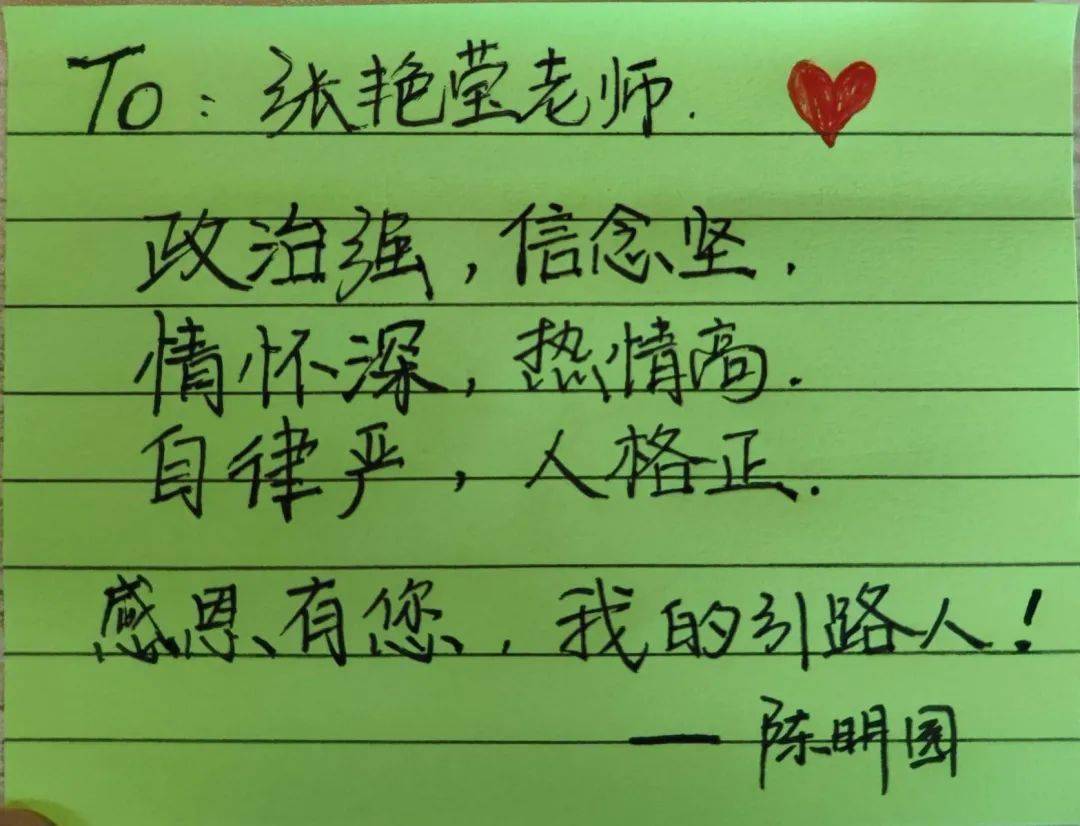 To：张艳莹老师.
政治强，信念坚.
情怀深，热情高.
自律严，人格正.
感恩有您，我的引路人！
—陈明园